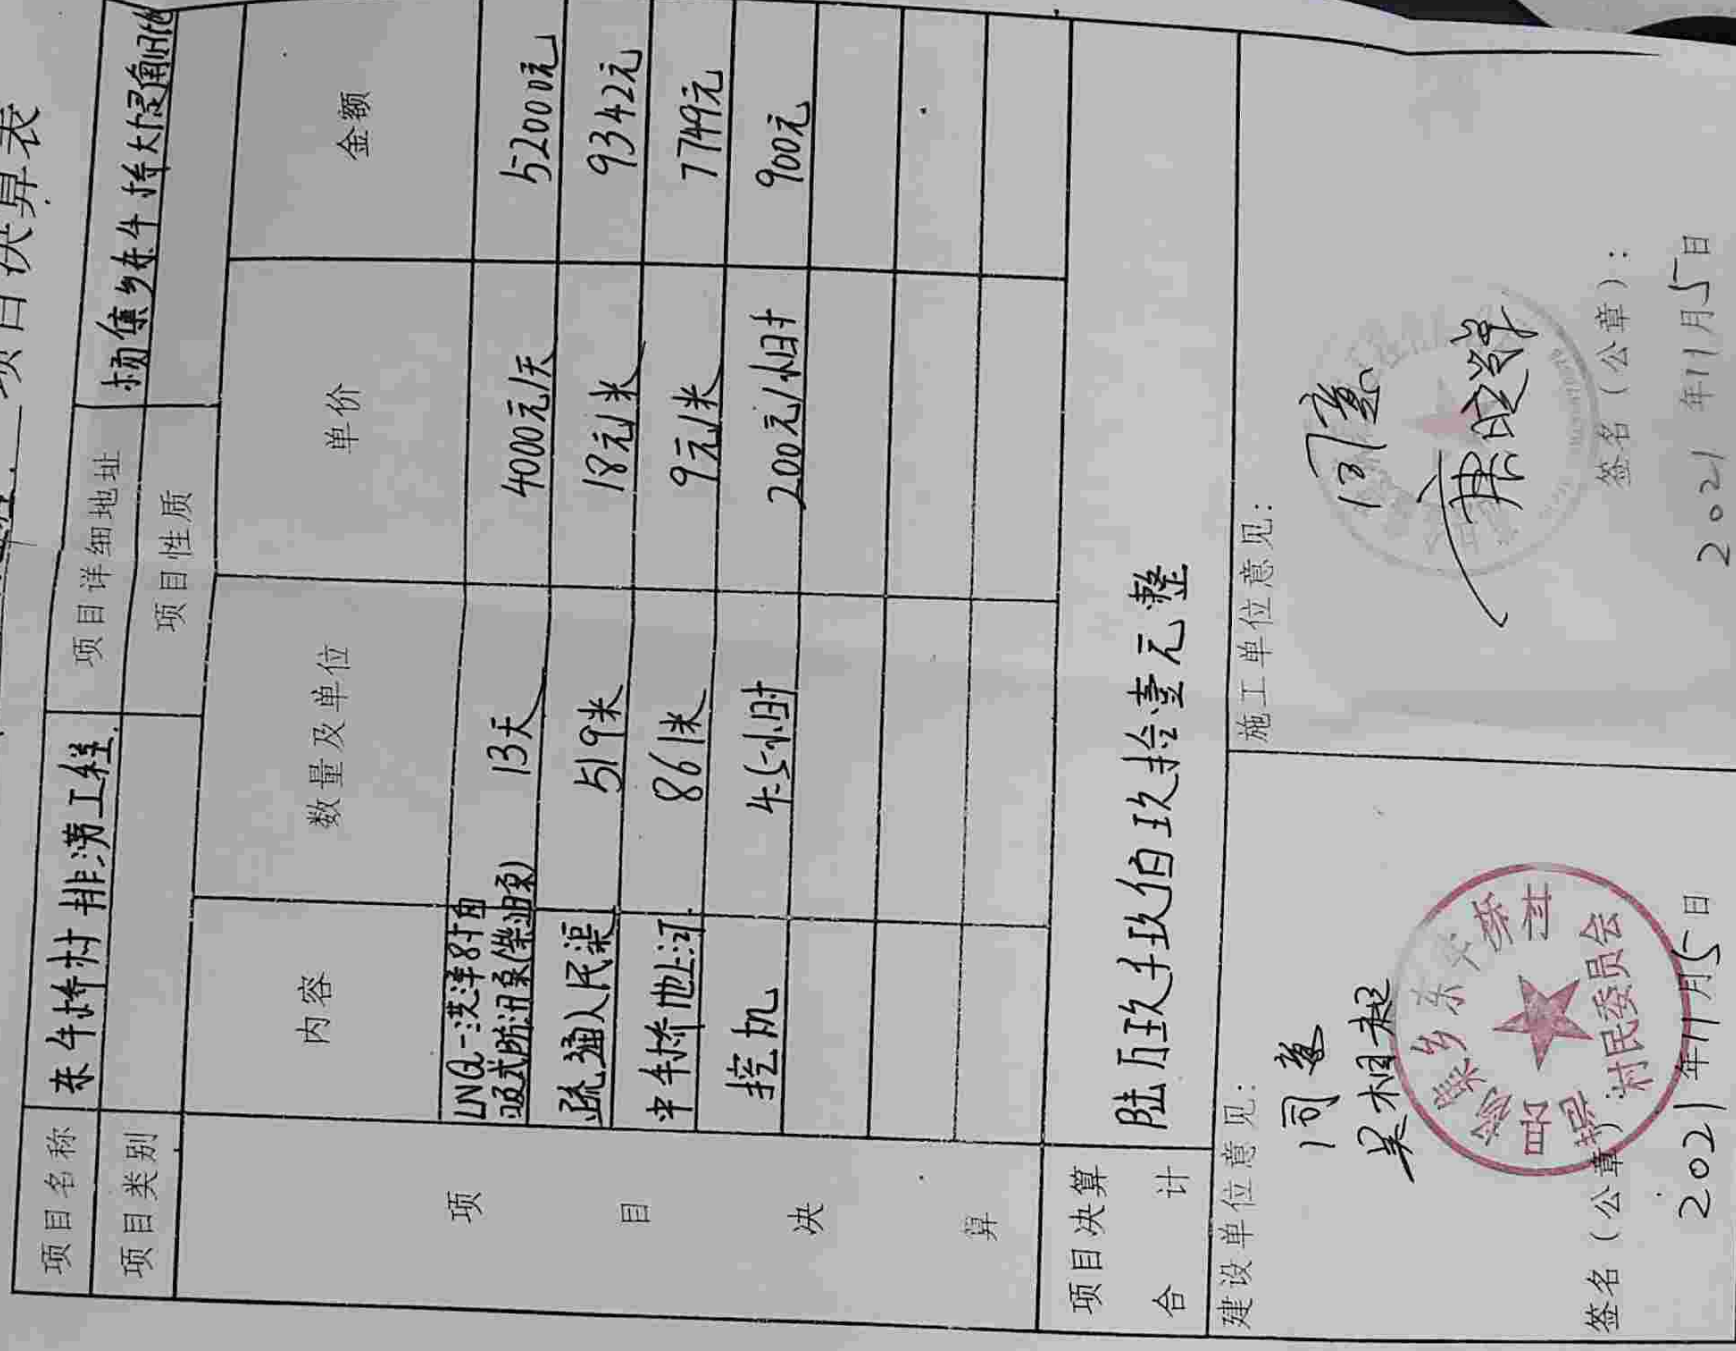 项目决算表
项目名称 东牛桥村排涝工程 项目详细地址 杨集乡东牛桥大堤南归化
项目类别 项目性质
项目决算 内容 数量及单位 单价 金额
LNQ-洪泽8寸自
吸式防汛泵(柴油泵) 13天 4000元/天 52000元
疏通人民渠 519米 18元/米 9342元
牛桥地上河 861米 9元/米 7749元
挖机 4.5小时 200元/小时 900元
项目决算
合计 陆万玖千玖佰玖拾壹元整
建设单位意见: 施工单位意见:
同意 同意
吴相起
乡东牛桥村
村民委员会
签名(公章): 签名(公章):
2021年11月5日 2021年11月5日